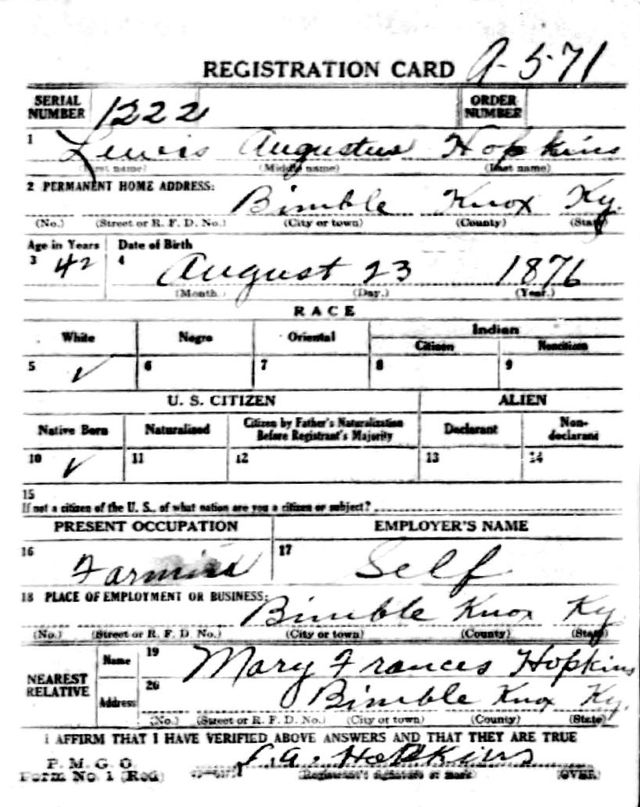 REGISTRATION CARD A-5-71
SERIAL NUMBER 1222 ORDER NUMBER
1 Lewis Augustus Hopkins
(First name) (Middle name) (Last name)
2 PERMANENT HOME ADDRESS:
Bimble Knox Ky.
(No.) (Street or R. F. D. No.) (City or town) (County) (State)
Age in Years Date of Birth
3 42 4 August 23 1876
(Month.) (Day.) (Year.)
RACE
White Negro Oriental Indian
Citizen Noncitizen
5 ✓ 6 7 8 9
U. S. CITIZEN ALIEN
Native Born Naturalized Citizen by Father's Naturalization Before Registrant's Majority Declarant Non-declarant
10 ✓ 11 12 13 14
15
If not a citizen of the U. S., of what nation are you a citizen or subject?
PRESENT OCCUPATION EMPLOYER'S NAME
16 17 Self
18 PLACE OF EMPLOYMENT OR BUSINESS:
Bimble Knox Ky
(No.) (Street or R. F. D. No.) (City or town) (County) (State)
NEAREST RELATIVE Name 19 Mary Frances Hopkins
Address 20 Bimble Knox Ky.
(No.) (Street or R. F. D. No.) (City or town) (County) (State)
I AFFIRM THAT I HAVE VERIFIED ABOVE ANSWERS AND THAT THEY ARE TRUE
P. M. G. O.
Form No. 1 (Red) L.A. Hopkins
(Registrant's signature or mark) (OVER)